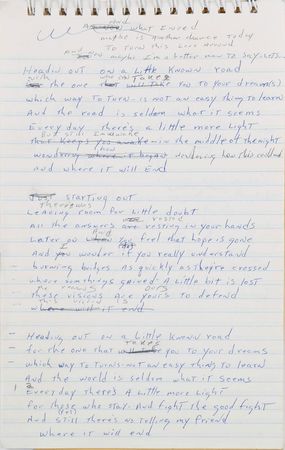 And
what I need
maybe is another chance today
To Turn this Love Around
And maybe I'm a better man to say
Headin out on a little known road
with one that Takes
the one that will take you to your dream(s)
which way to Turn - is not an easy thing to learn
And the road is seldom what it seems
Every day there's a little more light
but still I'm awake
That keeps you awake in the middle of the night
how
wondering how it began wondering how this ended
and where it will End
Just starting out
There was
Leaving room for little doubt
rested
All the answers are resting in your hands
And
Later on when you feel that hope is gone
I
And you wonder if you really understand
burning bridges As quickly as they're crossed
where somethings gained A little bit is lost
These visions Are yours to defend
this vision is
where will it end
Heading out on a little known road
Takes
for the one that will take you to your dreams
which way to Turns - not an easy thing to learn
And the world is seldom what it seems
Everyday There's A little more light
For those who stay And fight the good fight
And still there's no telling my friend
where it will end